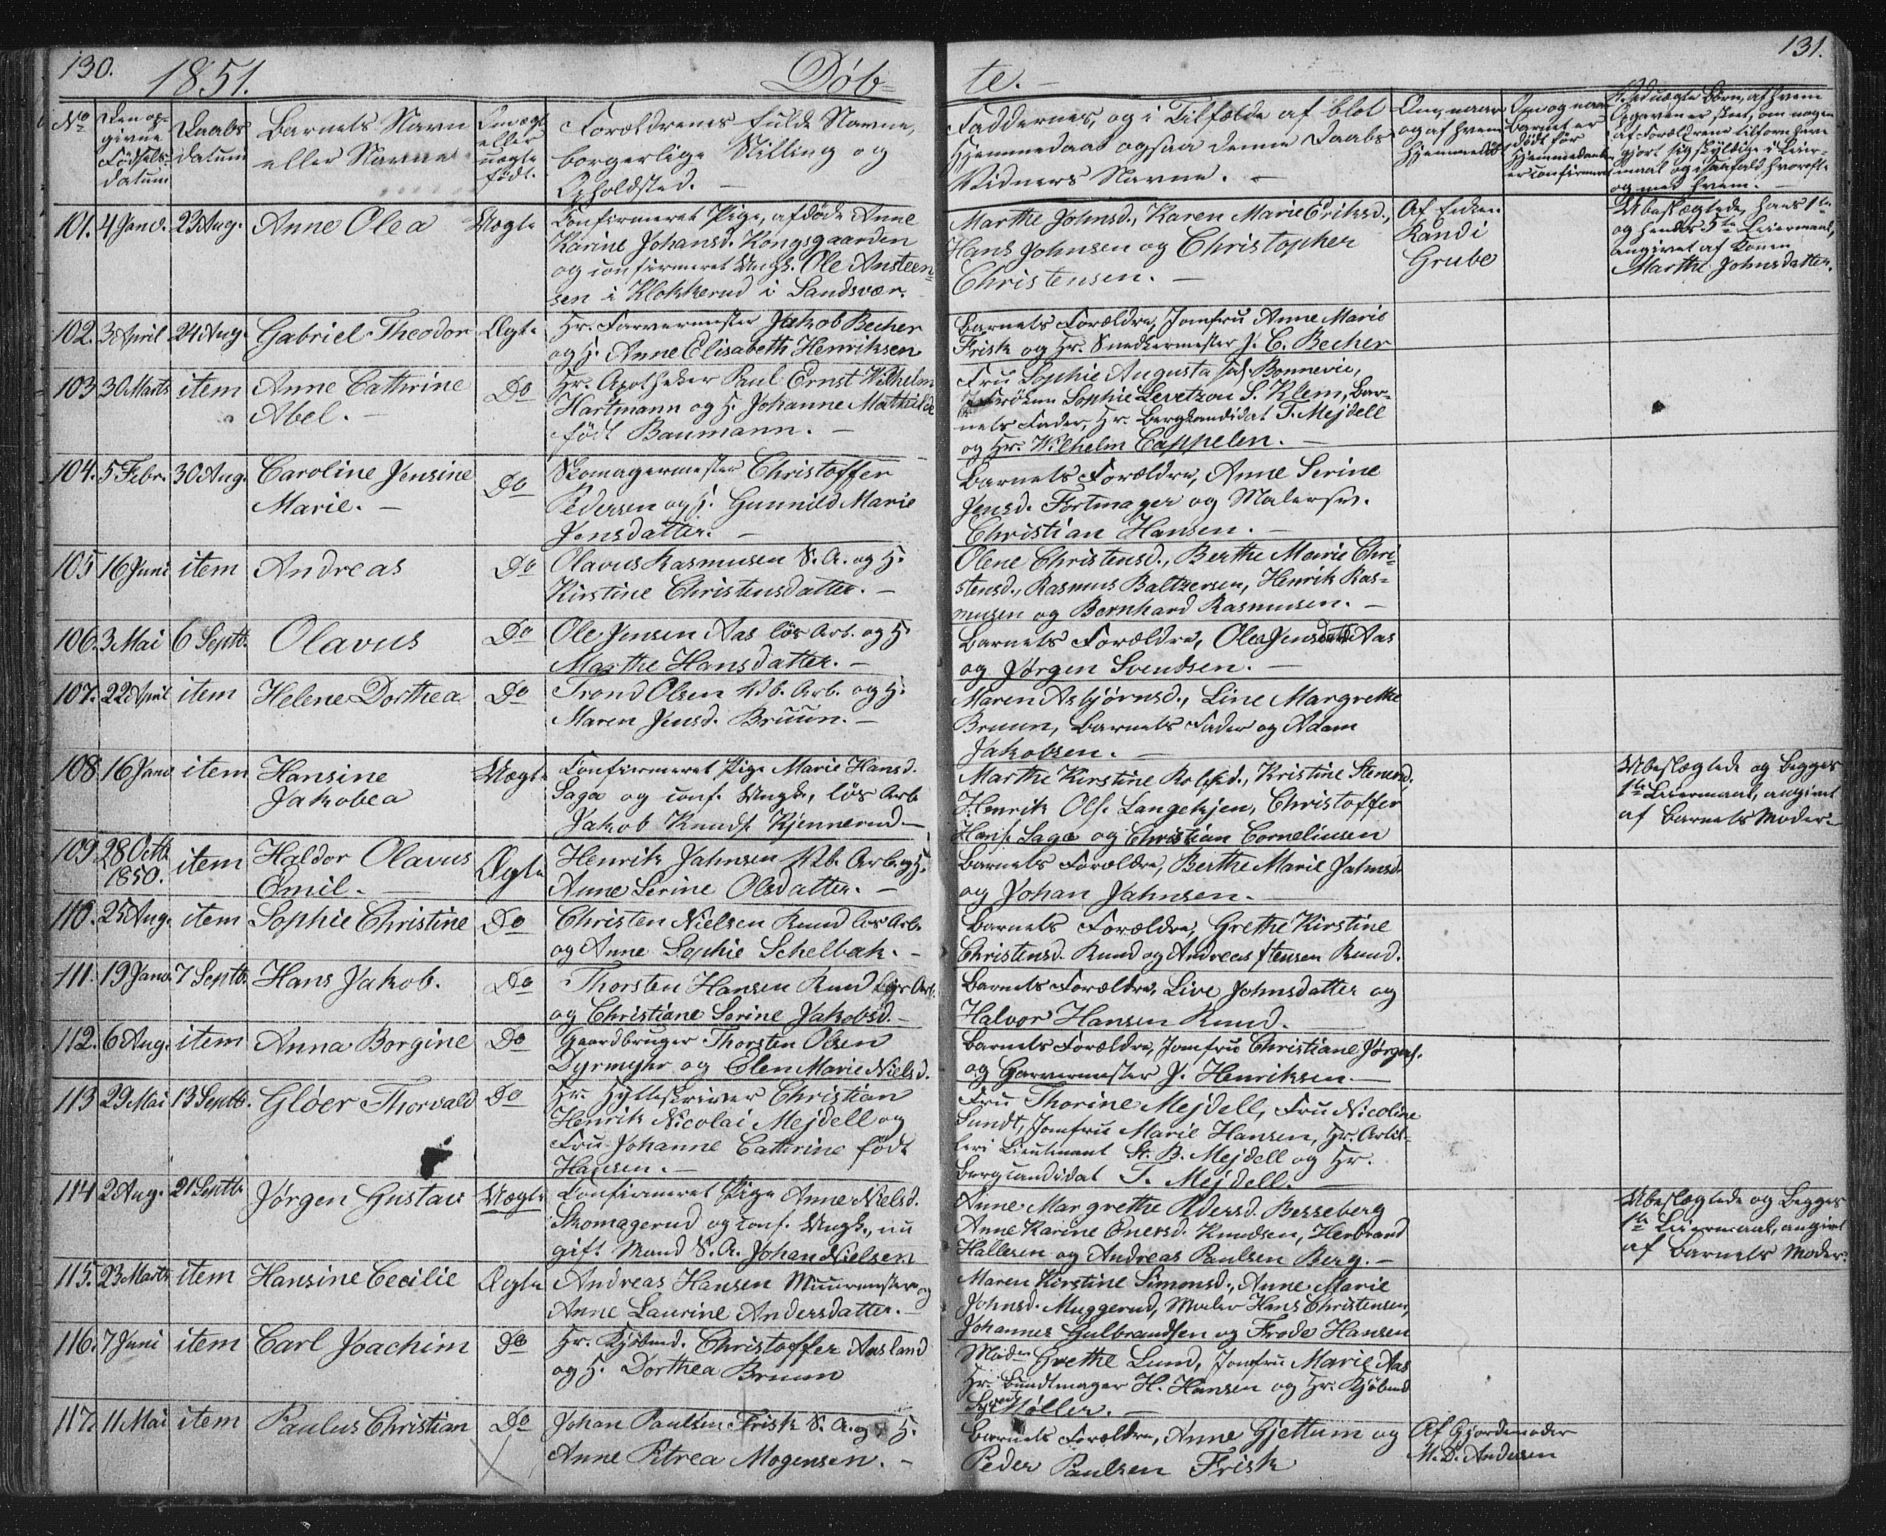 130.
1851.
Døb-
No
Den op-
givne
Fødsels-
datum
Daabs
datum
Barnets Navn
eller Navne
Om ægte
eller
uægte
født.
Forældrenes fulde Navne,
borgerlige Stilling og
Opholdsted.
101. 4 Janv. 23 Aug. Anne Olea Uægte
Confirmeret Pige, afdøde Anne
Karine Johansd. Kongsgaarden
og confirmeret Ungk. Ole Ansteen-
sen i Klokkerud i Sandsvær.
102. 3 April 24 Aug. Gabriel Theodor Ægte
Hr. Farvermester Jakob Becher
og H. Anne Elisabeth Henriksen
103 30 Marts item Anne Cathrine
Abel. Do
Hr. Apotheker Paul Ernst Wilhelm
Hartmann og H. Johanne Mathilde
født Baumann.
104. 5 Febr. 30 Aug. Caroline Jensine
Marie. Do
Skomagermester Christoffer
Pedersen og H. Gunnild Marie
Jensdatter.
105 16 Juni item Andreas Do
Olavus Rasmusen S. A. og H.
Kirstine Christensdatter.
106. 3 Mai 6 Septb. Olavus Do
Ole Jensen Aas løs Arb. og H.
Marthe Hansdatter.
107. 22 April item Helene Dorthea Do
Trond Olsen Arb. og H.
Maren Jensd. Bruun.
108. 16 Janv item Hansine
Jakobea Uægte
Confirmeret Pige Marie Hansd.
Saga og conf. Ungk., løs Arb
Jakob Knuds. Kjennerud
109 28 Octb.
1850. item Haldor Olavus
Emil. Ægte
Henrik Jahnsen Arb. og H.
Anne Serine Olsdatter.
110. 25 Aug. item Sophie Christine Do
Christen Nielsen Rund løs Arb.
og Anne Sophie Schelbak.
111. 19 Janv. 7 Septb. Hans Jakob. Do
Thorsten Hansen Rund Arb.
og Christiane Serine Jakobsd.
112. 6 Aug. item Anna Borgine Do
Gaardbruger Thorsten Olsen
Dyrmyhr og Olen Marie Nielsd.
113 29 Mai 13 Septb. Gløer Thorvald Do
Hr. Hytteskriver Christian
Henrik Nicolai Mejdell og
Fru Johanne Cathrine født
Hansen.
114 2 Aug. 21 Septb. Jørgen Gustav Uægte
Confirmeret Pige Anne Nielsd.
Skomagerud og conf. Ungk., nu
gift Mand S. A. Johan Nielsen
115. 23 Marts item Hansine Cecilie Ægte
Andreas Hansen Muurmester og
Anne Laurine Andersdatter.
116. 7 Juni item Carl Joachim Do
Hr. Kjøbmd. Christoffer Aasland
og H. Dorthea Bruun
117. 11 Mai item Paulus Christian Do
Johan Paulsen Frisk S. A. og H.
Anne Petrea Mogensen.
131.
te.
Faddernes, og i Tilfælde af blot
Hjemmedaab ogsaa denne Daabs
Vidners Navne.
Om, naar
og af hvem
hjemmedøbt
Om og naar
barnet er
død før
Hjemmedaaben
er confirmeret
Ved uægte Børn, af hvem
Opgaven er skeet, om nogen
af Forældrene tilforn have
gjort sig skyldige i Leier-
maal og i saafald hvorofte
og med hvem.
Marthe Johnsd., Karen Marie Eriksd.,
Hans Johnsen og Christopher
Christensen.
Af Enken
Randi
Grube
Ubeslægtede, hans 1te
og hendes 5te Leiermaal,
angivet af Konen
Marthe Johnsdatter.
Barnets Forældre, Jomfru Anne Marie
Frisk og Hr. Snedkermester J. C. Becher
Fru Sophie Augusta født Bonnevie,
Frøken Sophie Levetzou S. Klem, Bar-
nets Fader, Hr. Bergkandidat T. Mejdell
og Hr. Wilhelm Cappelen.
Barnets Forældre, Anne Serine
Jensd. Fortmager og Malersv.
Christian Hansen.
Olene Christensd., Berthe Marie Chri-
stensd., Rasmus Baltzersen, Henrik Ras-
musen og Bernhard Rasmusen.
Barnets Forældre, Olea Jensdatt. Aas
og Jørgen Svendsen.
Maren Asbjørnsd., Line Margrethe
Bruun, Barnets Fader og Adam
Jakobsen.
Marthe Kirstine Rolfsd., Kristine Steensd.,
Henrik Ols. Langekjen, Christoffer
Hans. Saga og Christian Corneliusen
Ubeslægtede og begges
1te Leiermaal, angivet
af Barnets Moder.
Barnets Forældre, Berthe Marie Jahnsd.
og Johan Jahnsen.
Barnets Forældre, Grethe Kirstine
Christensd. Rund og Andreas Stensen Rund.
Barnets Forældre, Live Johnsdatter og
Halvor Hansen Rund.
Barnets Forældre, Jomfru Christiane Jørgens.
og Garvermester J. Henriksen.
Fru Thorine Mejdell, Fru Nicoline
Sundt, Jomfru Marie Hansen, Hr. Artil-
leri Lieutinant St. B. Mejdell og Hr.
Bergcandidat T. Mejdell.
Anne Margrethe Pedersd. Besseberg
Anne Karine Enersd. Knudsen, Herbrand
Hallesen og Andreas Paulsen Berg.
Ubeslægtede og begges
1te Leiermaal, angivet
af Barnets Moder.
Maren Kirstine Simonsd., Anne Marie
Johnsd. Muggerud, Maler Hans Christensen,
Johannes Gulbrandsen og Frode Hansen
Madm Grethe Lund, Jomfru Marie Aas
Hr. Bundtmager H. Hansen og Hr. Kjøbmd
Møller.
Barnets Forældre, Anne Gjettum og
Peder Paulsen Frisk
Af Gjordemoder
M. D. Andersen